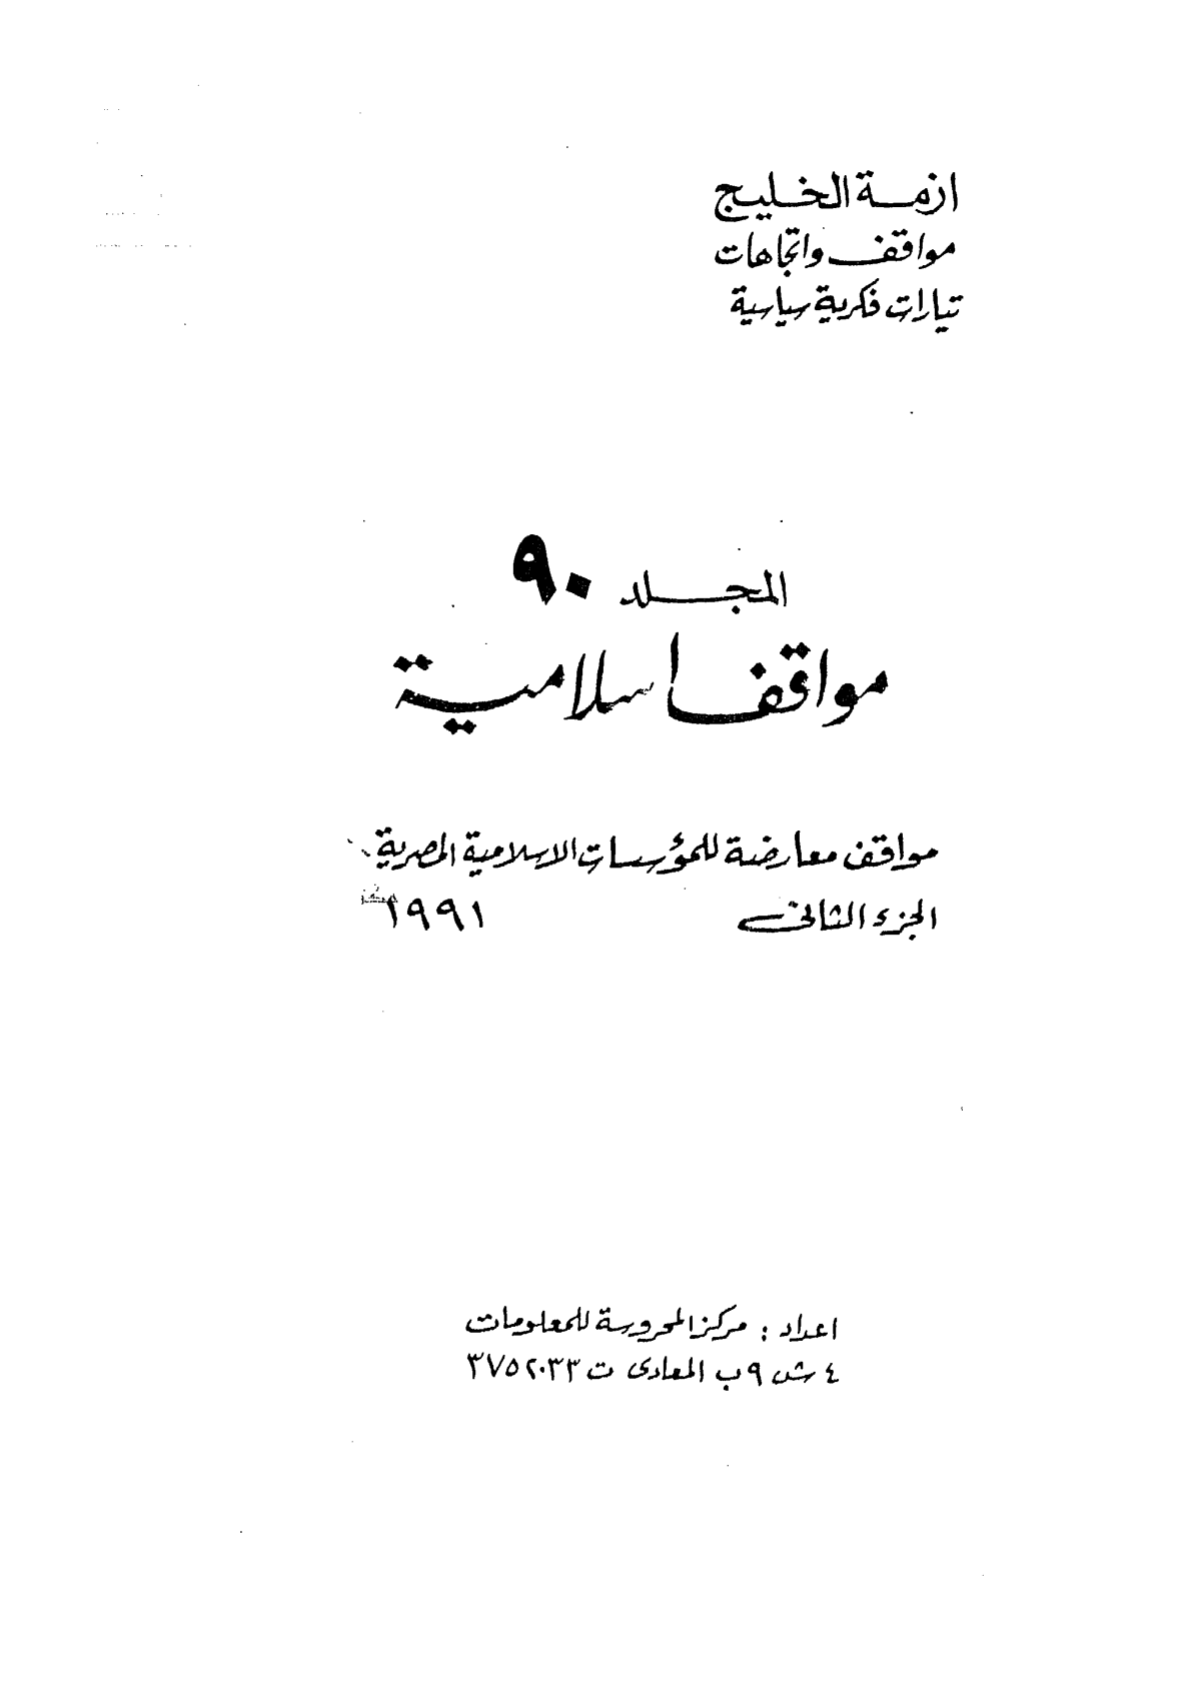 ازمة الخليج
مواقف واتجاهات
تيارات فكرية سياسية
المجلد ٩٠
مواقف اسلامية
مواقف معارضة للمؤسسات الاسلامية المصرية
الجزء الثانى ١٩٩١
اعداد : مركز المحروسة للمعلومات
٤ ش ٩ب المعادى ت ٣٧٥٢٠٣٣